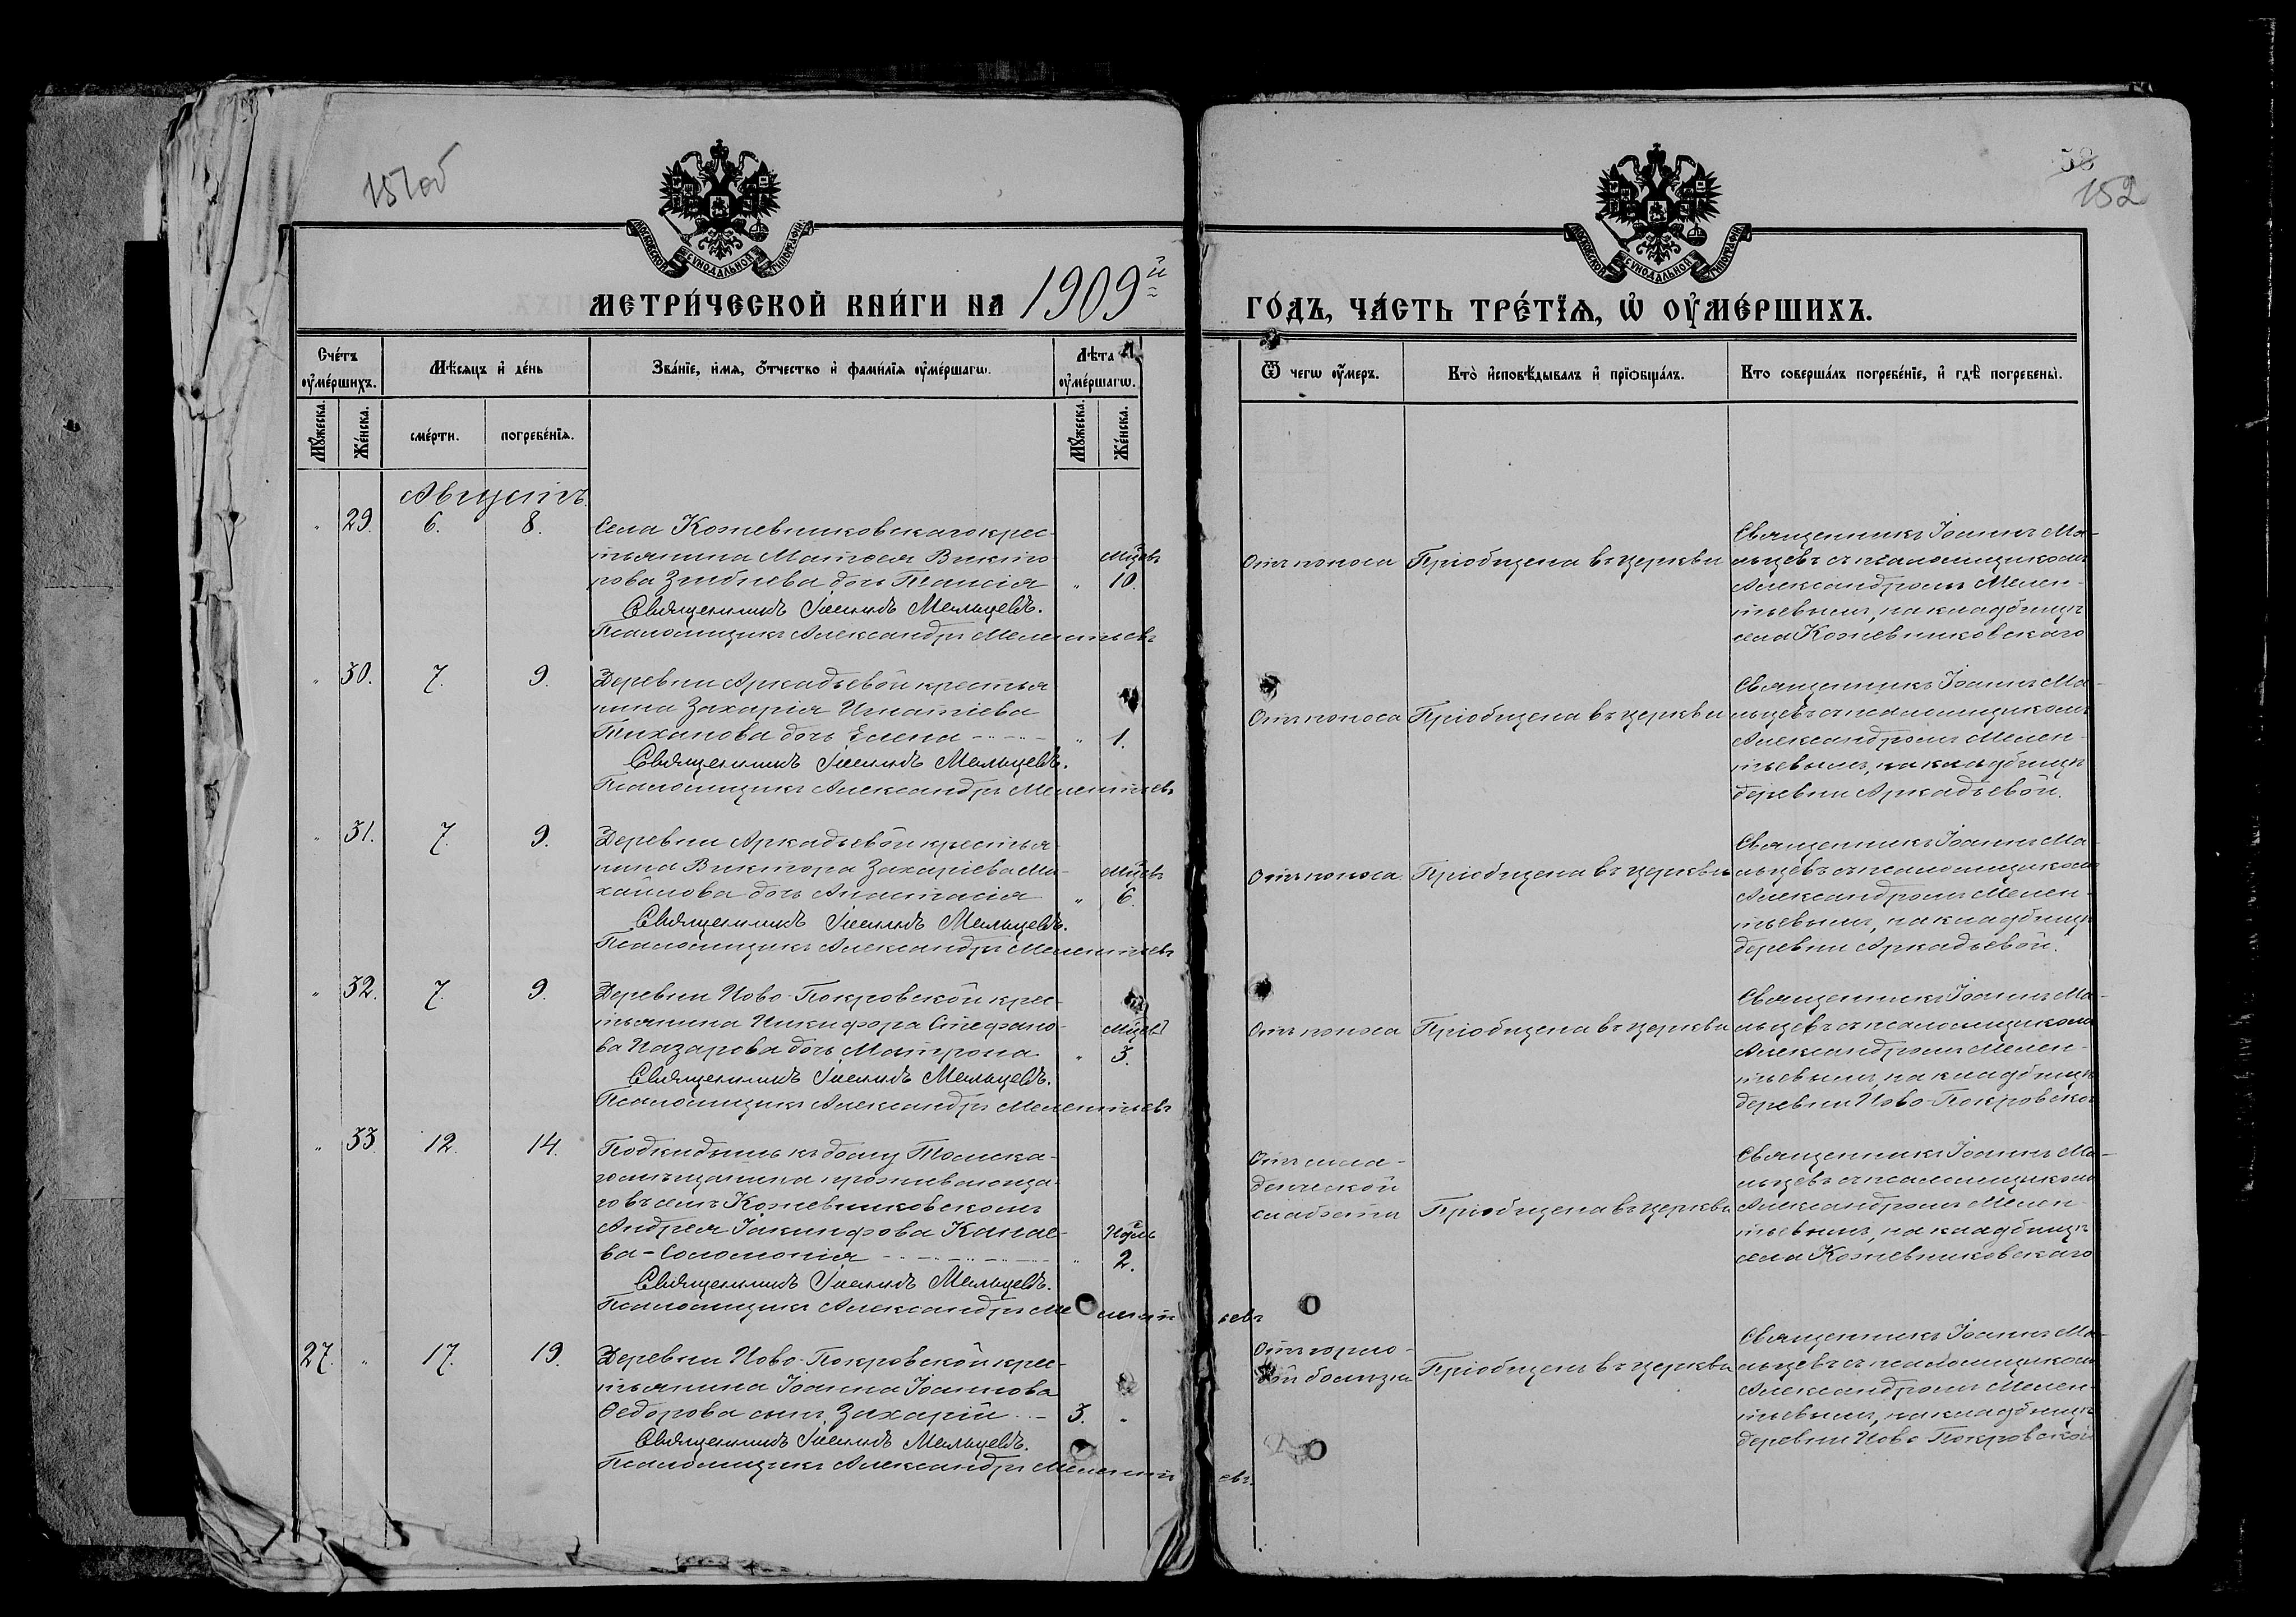 151об
58
152
МОСКОВСКОЙ СѴНОДАЛЬНОЙ ТИПОГРАФІИ
МОСКОВСКОЙ СѴНОДАЛЬНОЙ ТИПОГРАФІИ
МЕТРИ́ЧЕСКОЙ КНИ́ГИ НА 1909й ГО́ДЪ, ЧА́СТЬ ТРЕ́ТЇѦ, Ѡ҆ ОУ҆МЕ́РШИХЪ.
Сче́тъ оу҆ме́ршихъ.
Мѣ́сяцъ и҆ де́нь
Зва́нїе, и҆́мя, ѻ҆́тчество и҆ фами́лїя оу҆ме́ршагѡ.
Лѣ́та оу҆ме́ршагѡ.
Ѿ чегѡ̀ оу҆́меръ.
Кто̀ и҆сповѣ́дывалъ и҆ прїѡбща́лъ.
Кто соверша́лъ погребе́нїе, и҆ гдѣ̀ погребены̀.
Мꙋ́жеска.
Же́нска.
сме́рти.
погребе́нїѧ.
Мꙋ́жеска.
Же́нска.
Августъ.
" 29. 6. 8.
Села Кожевниковскаго крес-
тьянина Матөея Викто-
рова Зиблева дочь Таисія
" мцевъ 10.
Священникъ Іоаннъ Мальцевъ.
Псаломщикъ Александръ Мелентьевъ
Отъ поноса
Пріобщена въ церкви
Священникъ Іоаннъ Ма-
льцевъ съ псаломщикомъ
Александромъ Мелен-
тьевымъ, на кладбищѣ
села Кожевниковскаго
" 30. 7. 9.
Деревни Аркадьевой крестья
нина Захарія Игнатіева
Тиханова дочь Елена
" 1.
Священникъ Іоаннъ Мальцевъ.
Псаломщикъ Александръ Мелентьевъ
Отъ поноса
Пріобщена въ церкви
Священникъ Іоаннъ Ма-
льцевъ съ псаломщикомъ
Александромъ Мелен-
тьевымъ, на кладбищѣ
деревни Аркадьевой.
" 31. 7. 9.
Деревни Аркадьевой крестья-
нина Виктора Захаріева Ми-
хайлова дочь Анастасія
" мцевъ 6.
Священникъ Іоаннъ Мальцевъ.
Псаломщикъ Александръ Мелентьевъ
Отъ поноса.
Пріобщена въ церкви
Священникъ Іоаннъ Ма-
льцевъ съ псаломщикомъ
Александромъ Мелен-
тьевымъ, на кладбищѣ
деревни Аркадьевой.
" 32. 7. 9.
Деревни Ново-Покровской крес-
тьянина Никифора Стефано-
ва Назарова дочь Матрона
" мцевъ 3.
Священникъ Іоаннъ Мальцевъ.
Псаломщикъ Александръ Мелентьевъ
Отъ поноса
Пріобщена въ церкви
Священникъ Іоаннъ Ма-
льцевъ съ псаломщикомъ
Александромъ Мелен-
тьевымъ, на кладбищѣ
деревни Ново-Покровской
" 33. 12. 14.
Подкидышъ къ дому Томска-
го мѣщанина проживающа-
го въ селѣ Кожевниковскомъ
Андрея Іакинфова Канае-
ва - Соломонія
" Недѣль 2.
Священникъ Іоаннъ Мальцевъ.
Псаломщикъ Александръ Мелентьевъ
Отъ мла-
денческой
слабости
Пріобщена въ церкви
Священникъ Іоаннъ Ма-
льцевъ съ псаломщикомъ
Александромъ Мелен-
тьевымъ, на кладбищѣ
села Кожевниковскаго
27. " 17. 19.
Деревни Ново-Покровской крес-
тьянина Іоанна Іоаннова
Өедорова сынъ Захарій
3. "
Священникъ Іоаннъ Мальцевъ.
Псаломщикъ Александръ Мелентьевъ.
Отъ горло-
вой болѣзни
Пріобщенъ въ церкви
Священникъ Іоаннъ Ма-
льцевъ съ псаломщикомъ
Александромъ Мелен-
тьевымъ, на кладбищѣ
деревни Ново-Покровской